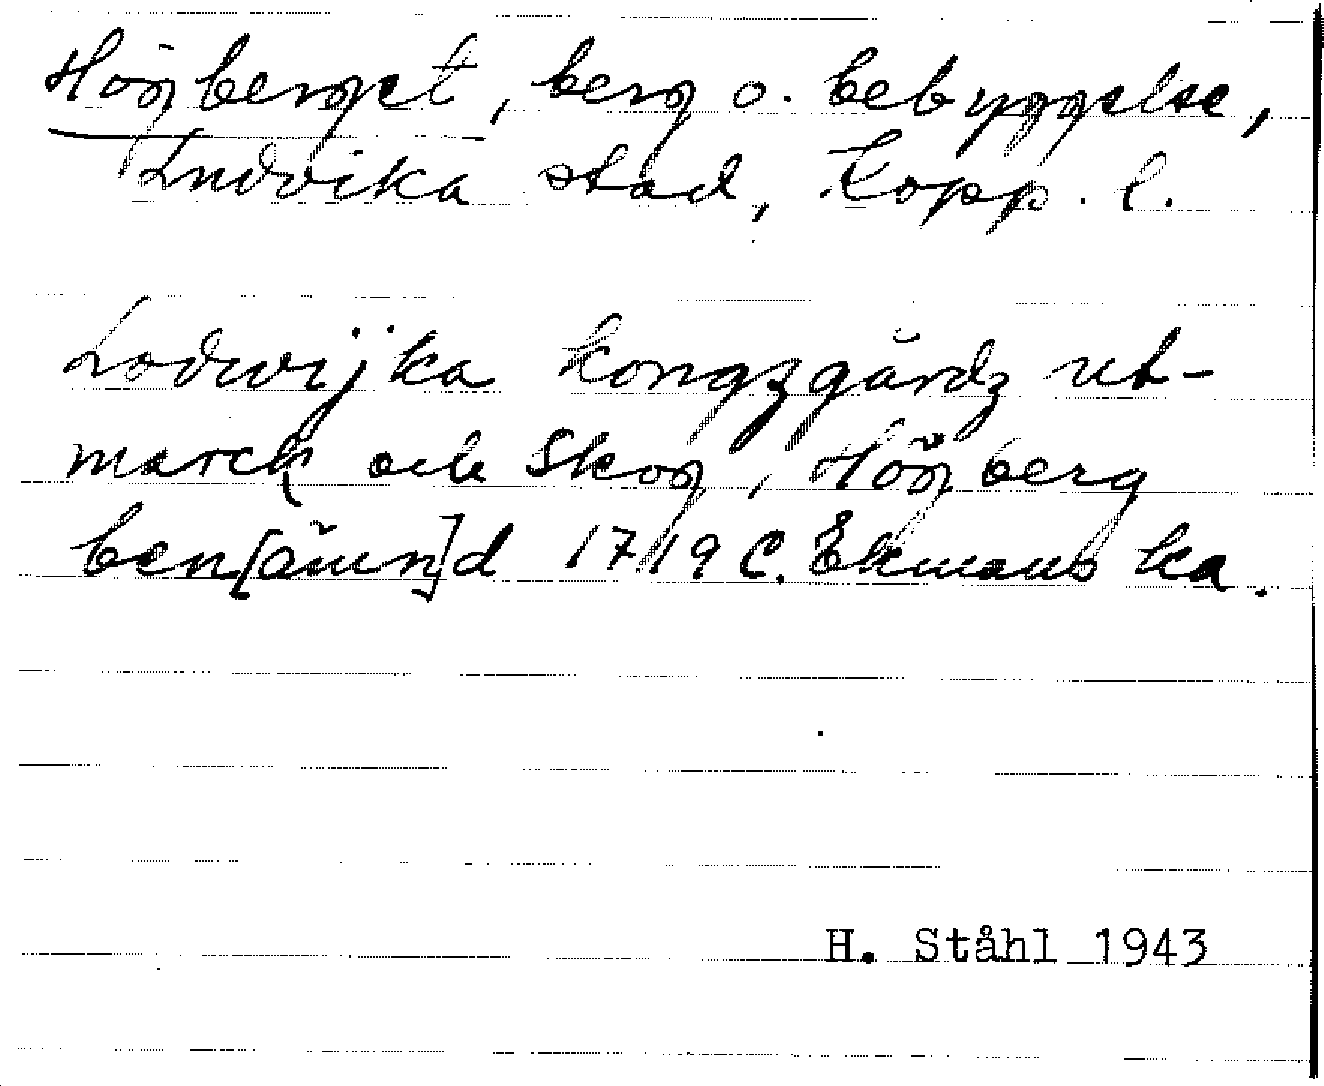 Högberget, berg o. bebyggelse,
Ludvika stad, Kopp. l.
Lodwijka kongzgårdz ut-
marck och Skog, Högberg
ben[ämn]d 1719 C. Ekmans ka.
H. Ståhl 1943